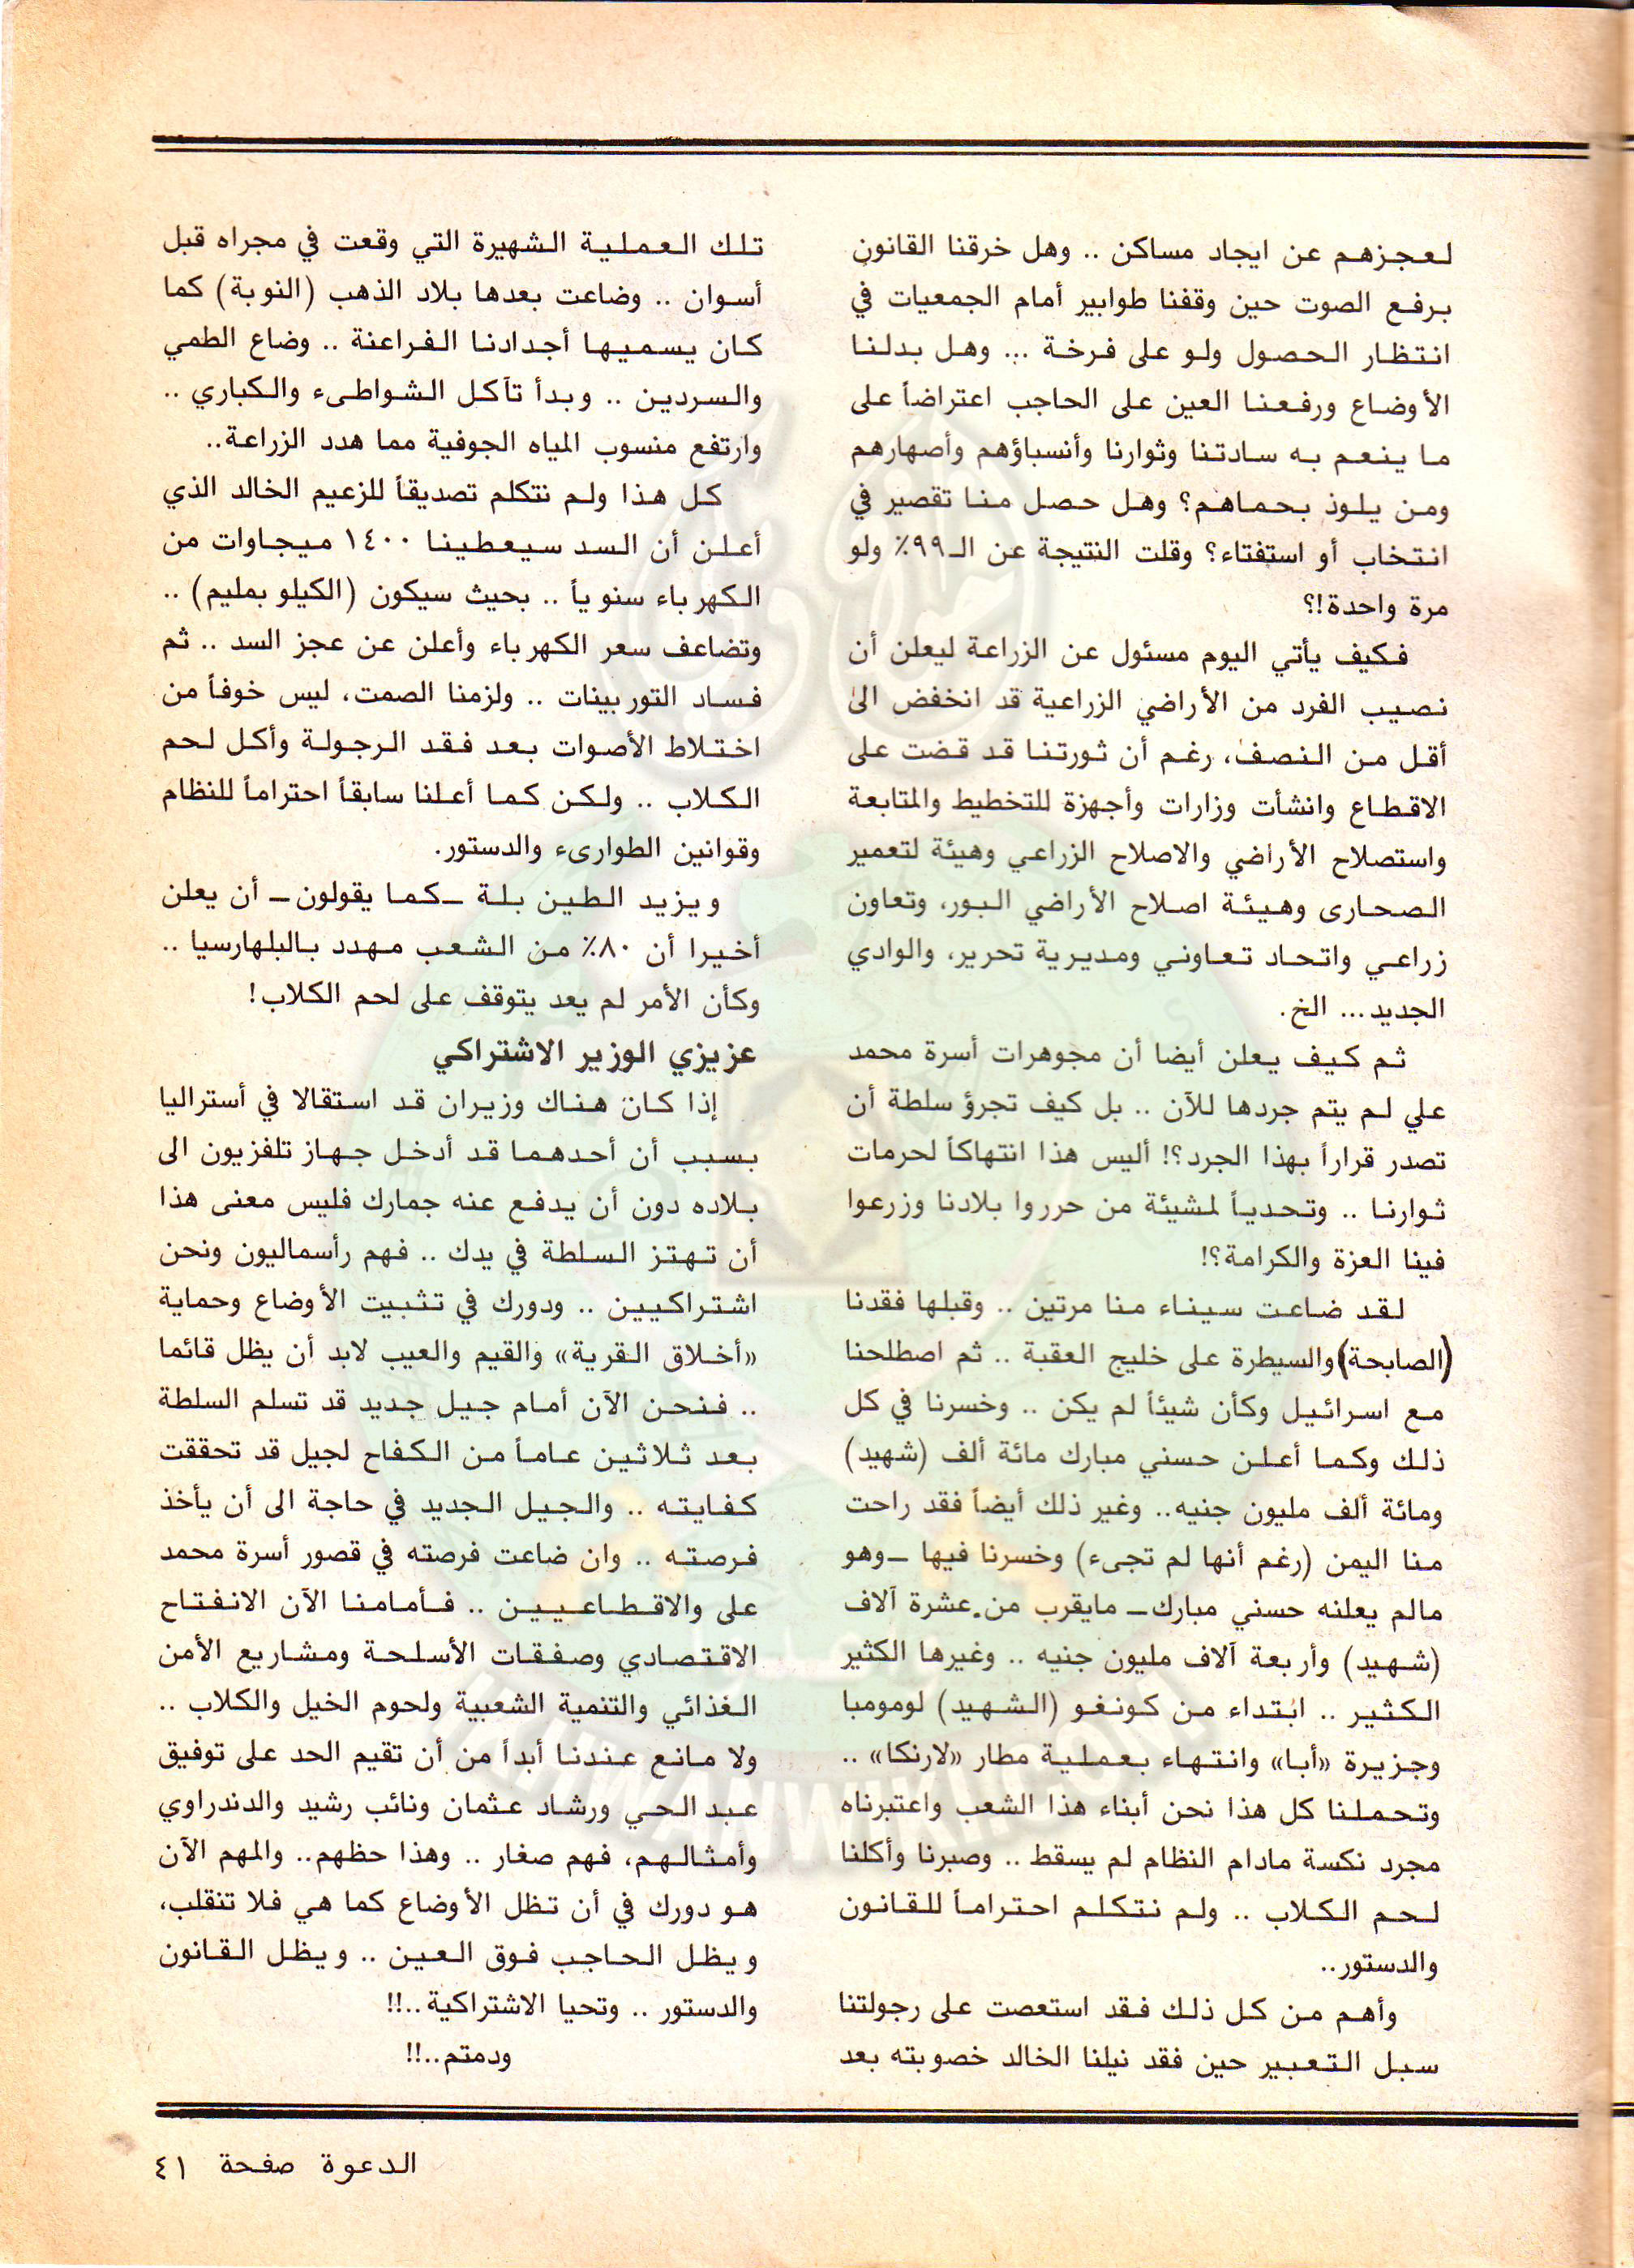 لعجزهم عن ايجاد مساكن .. وهل خرقنا القانون
برفع الصوت حين وقفنا طوابير أمام الجمعيات في
انتظار الحصول ولو على فرخة ... وهل بدلنا
الأوضاع ورفعنا العين على الحاجب اعتراضاً على
ما ينعم به سادتنا وثوارنا وأنسباؤهم وأصهارهم
ومن يلوذ بحماهم؟ وهل حصل منا تقصير في
انتخاب أو استفتاء؟ وقلت النتيجة عن الـ٩٩٪ ولو
مرة واحدة!؟
فكيف يأتي اليوم مسئول عن الزراعة ليعلن أن
نصيب الفرد من الأراضي الزراعية قد انخفض الى
أقل من النصف، رغم أن ثورتنا قد قضت على
الاقطاع وانشأت وزارات وأجهزة للتخطيط والمتابعة
واستصلاح الأراضي والاصلاح الزراعي وهيئة لتعمير
الصحارى وهيئة اصلاح الأراضي البور، وتعاون
زراعي واتحاد تعاوني ومديرية تحرير، والوادي
الجديد... الخ.
ثم كيف يعلن أيضا أن مجوهرات أسرة محمد
علي لم يتم جردها للآن .. بل كيف تجرؤ سلطة أن
تصدر قراراً بهذا الجرد؟! أليس هذا انتهاكاً لحرمات
ثوارنا .. وتحدياً لمشيئة من حرروا بلادنا وزرعوا
فينا العزة والكرامة؟!
لقد ضاعت سيناء منا مرتين .. وقبلها فقدنا
(الصابحة) والسيطرة على خليج العقبة .. ثم اصطلحنا
مع اسرائيل وكأن شيئاً لم يكن .. وخسرنا في كل
ذلك وكما أعلن حسني مبارك مائة ألف (شهيد)
ومائة ألف مليون جنيه.. وغير ذلك أيضاً فقد راحت
منا اليمن (رغم أنها لم تجىء) وخسرنا فيها ـ وهو
مالم يعلنه حسني مبارك ـ مايقرب من عشرة آلاف
(شهيد) وأربعة آلاف مليون جنيه .. وغيرها الكثير
الكثير .. ابتداء من كونغو (الشهيد) لومومبا
وجزيرة «أبا» وانتهاء بعملية مطار «لارنكا» ..
وتحملنا كل هذا نحن أبناء هذا الشعب واعتبرناه
مجرد نكسة مادام النظام لم يسقط .. وصبرنا وأكلنا
لحم الكلاب .. ولم نتكلم احتراماً للقانون
والدستور..
وأهم من كل ذلك فقد استعصت على رجولتنا
سبل التعبير حين فقد نيلنا الخالد خصوبته بعد
تلك العملية الشهيرة التي وقعت في مجراه قبل
أسوان .. وضاعت بعدها بلاد الذهب (النوبة) كما
كان يسميها أجدادنا الفراعنة .. وضاع الطمي
والسردين .. وبدأ تآكل الشواطىء والكباري ..
وارتفع منسوب المياه الجوفية مما هدد الزراعة..
كل هذا ولم نتكلم تصديقاً للزعيم الخالد الذي
أعلن أن السد سيعطينا ١٤٠٠ ميجاوات من
الكهرباء سنوياً .. بحيث سيكون (الكيلو بمليم) ..
وتضاعف سعر الكهرباء وأعلن عن عجز السد .. ثم
فساد التوربينات .. ولزمنا الصمت، ليس خوفاً من
اختلاط الأصوات بعد فقد الرجولة وأكل لحم
الكلاب .. ولكن كما أعلنا سابقاً احتراماً للنظام
وقوانين الطوارىء والدستور.
ويزيد الطين بلة ـ كما يقولون ـ أن يعلن
أخيرا أن ٨٠٪ من الشعب مهدد بالبلهارسيا ..
وكأن الأمر لم يعد يتوقف على لحم الكلاب!
عزيزي الوزير الاشتراكي
إذا كان هناك وزيران قد استقالا في أستراليا
بسبب أن أحدهما قد أدخل جهاز تلفزيون الى
بلاده دون أن يدفع عنه جمارك فليس معنى هذا
أن تهتز السلطة في يدك .. فهم رأسماليون ونحن
اشتراكيين .. ودورك في تثبيت الأوضاع وحماية
«أخلاق القرية» والقيم والعيب لابد أن يظل قائما
.. فنحن الآن أمام جيل جديد قد تسلم السلطة
بعد ثلاثين عاماً من الكفاح لجيل قد تحققت
كفايته .. والجيل الجديد في حاجة الى أن يأخذ
فرصته .. وان ضاعت فرصته في قصور أسرة محمد
على والاقطاعيين .. فأمامنا الآن الانفتاح
الاقتصادي وصفقات الأسلحة ومشاريع الأمن
الغذائي والتنمية الشعبية ولحوم الخيل والكلاب ..
ولا مانع عندنا أبداً من أن تقيم الحد على توفيق
عبد الحي ورشاد عثمان ونائب رشيد والدندراوي
وأمثالهم، فهم صغار .. وهذا حظهم.. والمهم الآن
هو دورك في أن تظل الأوضاع كما هي فلا تنقلب،
ويظل الحاجب فوق العين .. ويظل القانون
والدستور .. وتحيا الاشتراكية..!!
ودمتم..!!
الدعوة صفحة ٤١